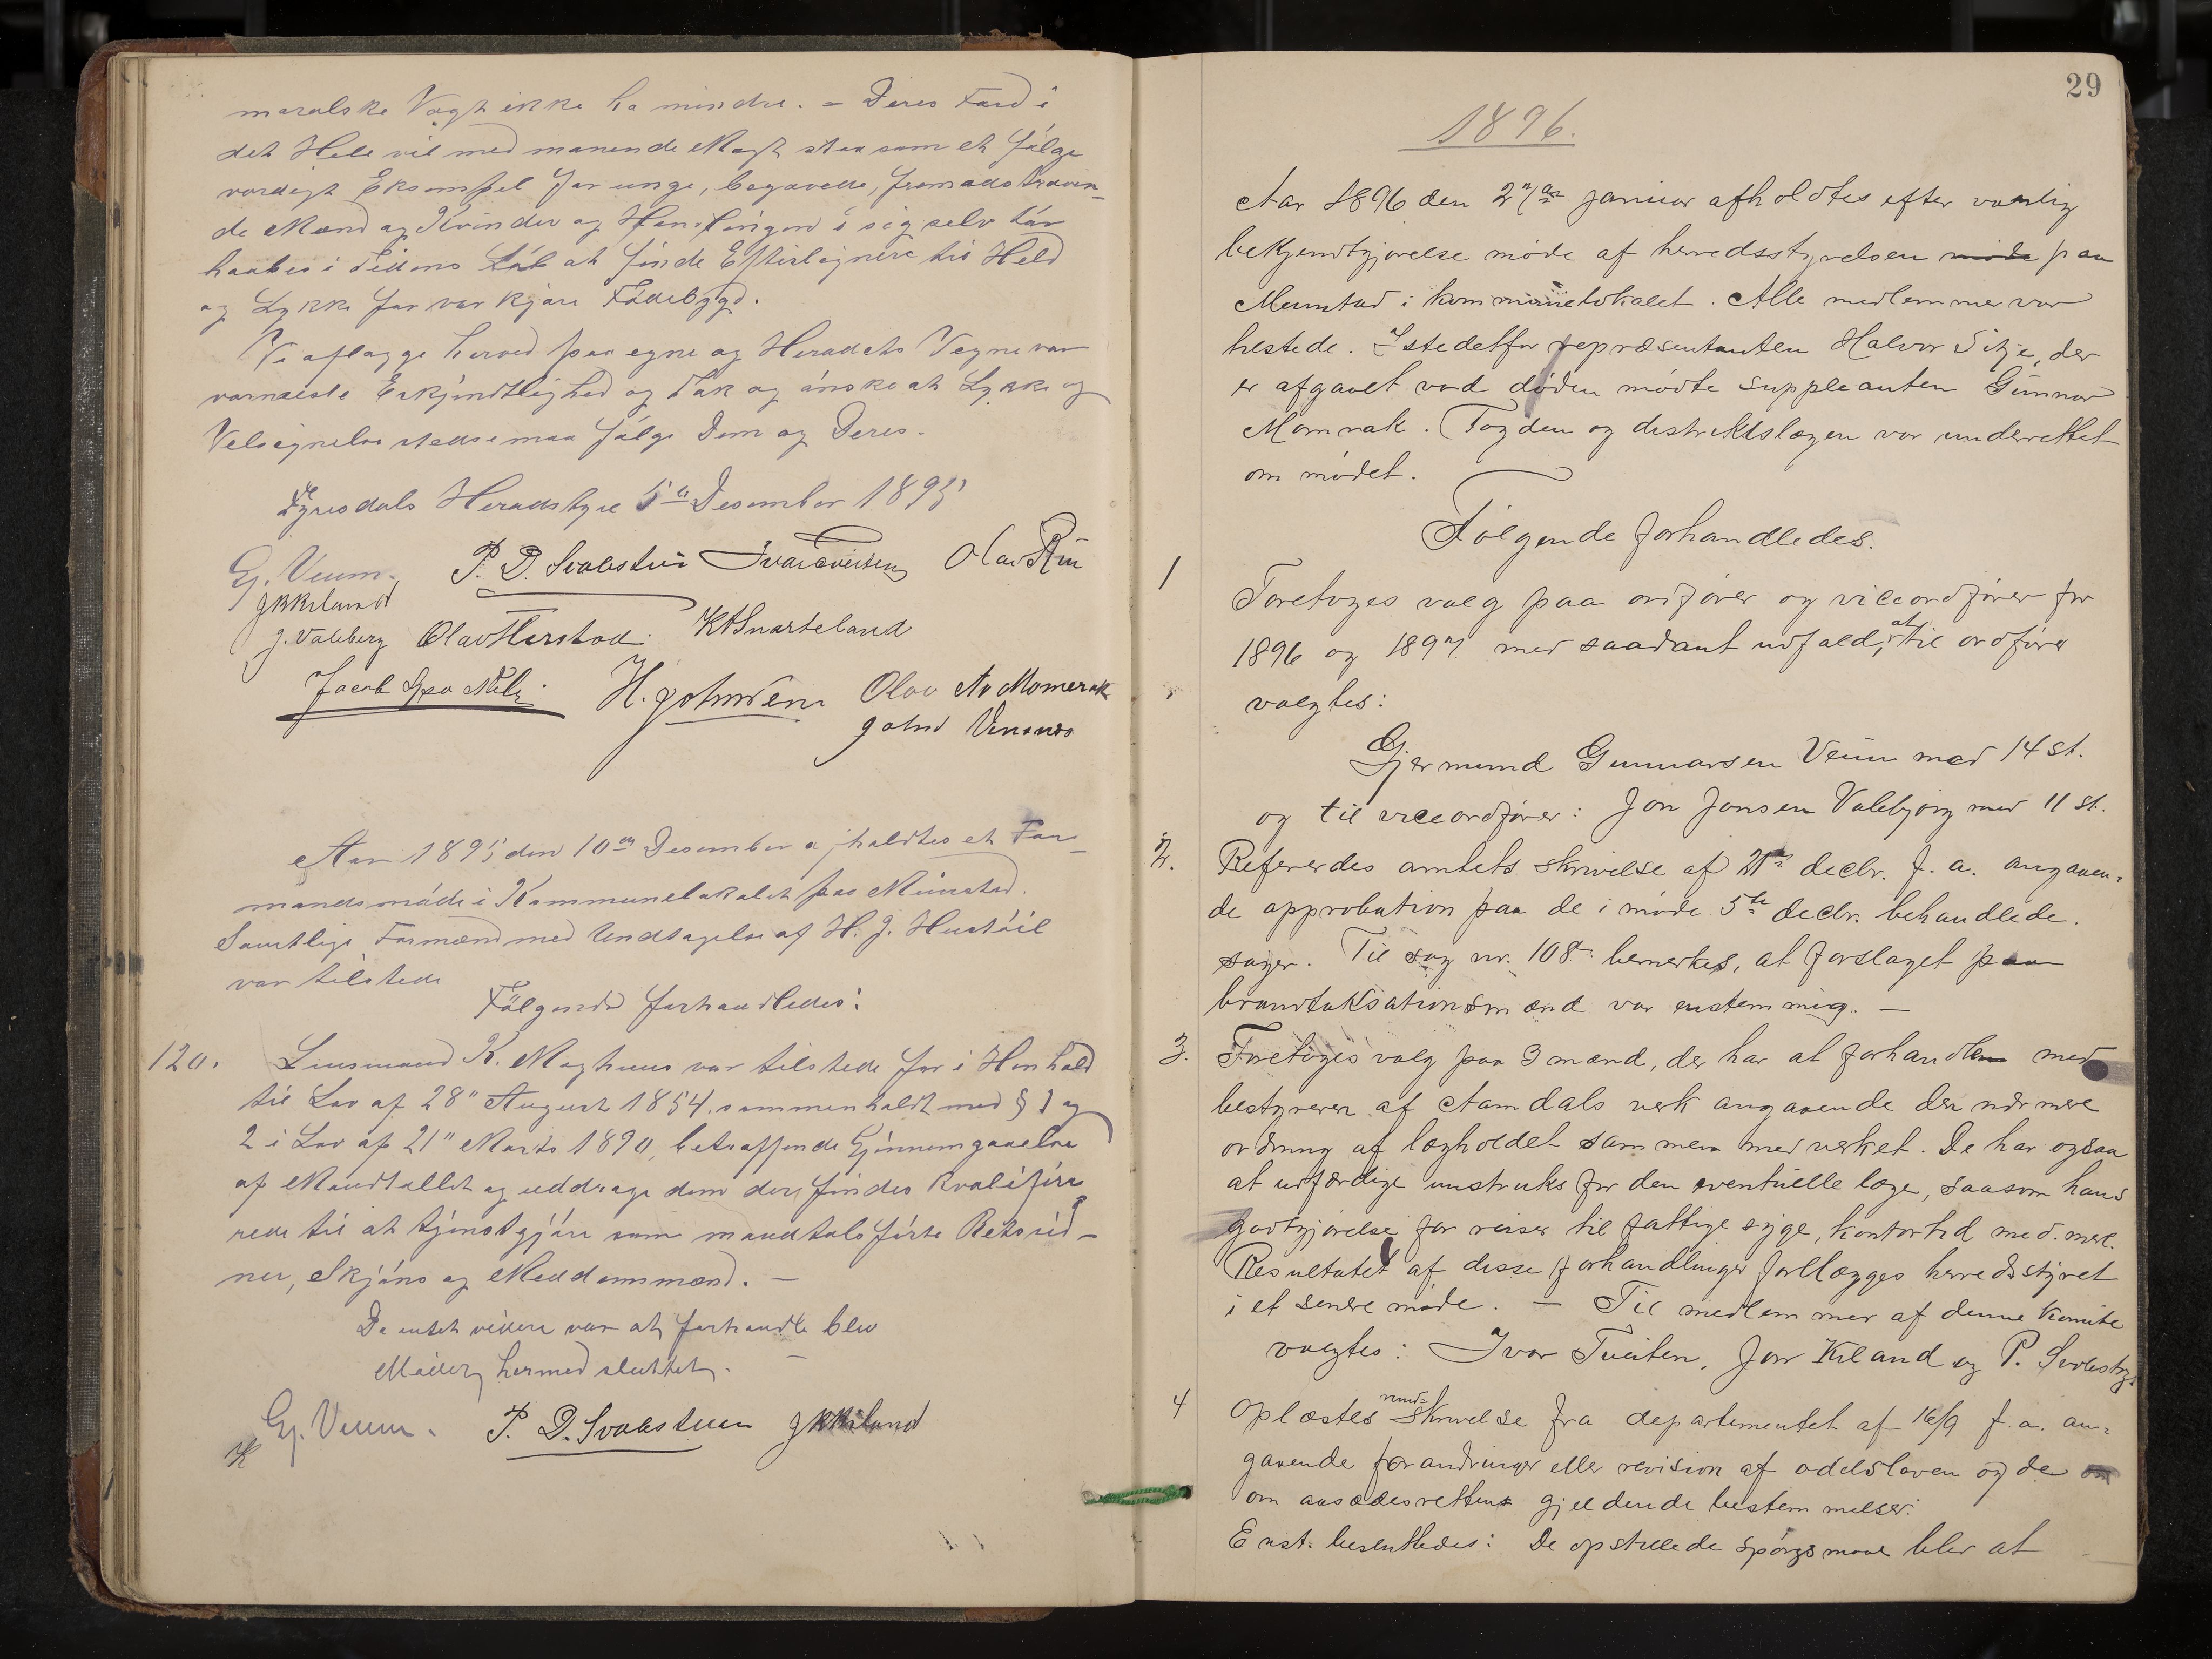 moralske Vægt ikke ha mindre. – Deres Færd i
det Hele vil med manende Magt staa som et følge
værdigt Eksempel for unge, begavede, fremadstræven-
de Mænd og Kvinder og Handlingen i sig selv tør
haabes i Tidens Løb at finde Efterlignere til Held
og Lykke for vor kjære Fødebygd.
Vi aflægge herved paa egne og Heradets Vegne vor
varmeste Erkjendtlighed og Tak og ønske at Lykke og
Velsignelse stedse maa følge Dem og Deres.
Fyresdals Heradstyre 5te Desember 1895
Gj. Veum. P. D. Svalestuen Ivar Tveiten Olav Rui
J K Kiland
J. Valeberg Olav Harstad. K A Snarteland
Jacob H. Johnsen Olav Av Momrak
John
Aar 1895 den 10de Desember afholdtes et For-
mandsmøde i Kommunelokalet paa Meunstad.
Samtlige Formænd med Undtagelse af H. J. Hustøil
var tilstede
Følgende forhandledes:
120. Lensmand K. Moghuus var tilstede for i Henhold
til Lov af 28" August 1854. sammenholdt med § 1 og
2 i Lov af 21" Marts 1890, betræffende Gjennemgaaelse
af Mandtallet og uddrage dem der findes kvalifise
rede til at tjenstgjøre som mandtalsførte Retsvid-
ner, Skjøns og Meddomsmænd. –
Da intet videre var at forhandle blev
Mødet hermed sluttet. –
Gj. Veum. P. D. Svalestuen J K Kiland
K
29
1896.
Aar 1896 den 2den januar afholdtes efter vanlig
bekjendtgjørelse møde af herredsstyrelsen møde paa
Meunstad i kommunelokalet. Alle medlemmer var
tilstede. Istedetfor repræsentanten Halvor Sitje, der
er afgaaet ved døden mødte suppleanten Gunnar
Momrak. Fogden og distriktslægen var underrettet
om mødet.
Følgende forhandledes.
1 Foretoges valg paa ordfører og viceordfører for
1896 og 1897. med saadant udfald, at til ordfører
valgtes:
Gjermund Gunnarsen Veum med 14 st.
og til viceordfører: Jon Jonsen Valebjørg med 11 st.
2. Refererdes amtets skrivelse af 21de decbr. f. a. angaaen-
de approbation paa de i møde 5te decbr. behandlede.
sager. Til sag nr. 108. bemerkes, at forslaget paa
brandtaksationsmænd var enstemmig. –
3. Foretoges valg paa 3 mænd, der har at forhandle med
bestyreren af Aamdals verk angaaende den nærmere
ordning af lægholdet sammen med verket. De har ogsaa
at udfærdige instruks for den eventuelle læge, saasom hans
godtgjørelse for reiser til fattige syge, kontortid med. mere.
Resultatet af disse forhandlinger forllægges herredsstyret
i et senere møde. – Til medlemmer af denne komite
valgtes: Ivar Tveiten, Jon Kiland og P. Svalestg.
4 Oplæstes rund-skrivelse fra departementet af 16/9 f. a. an-
gaaende forandringer eller revision af oddelsloven og de om
om aasædesretten gjeldende bestemmelser.
Enst. besluttedes: De opstillede spørgsmaal blev at